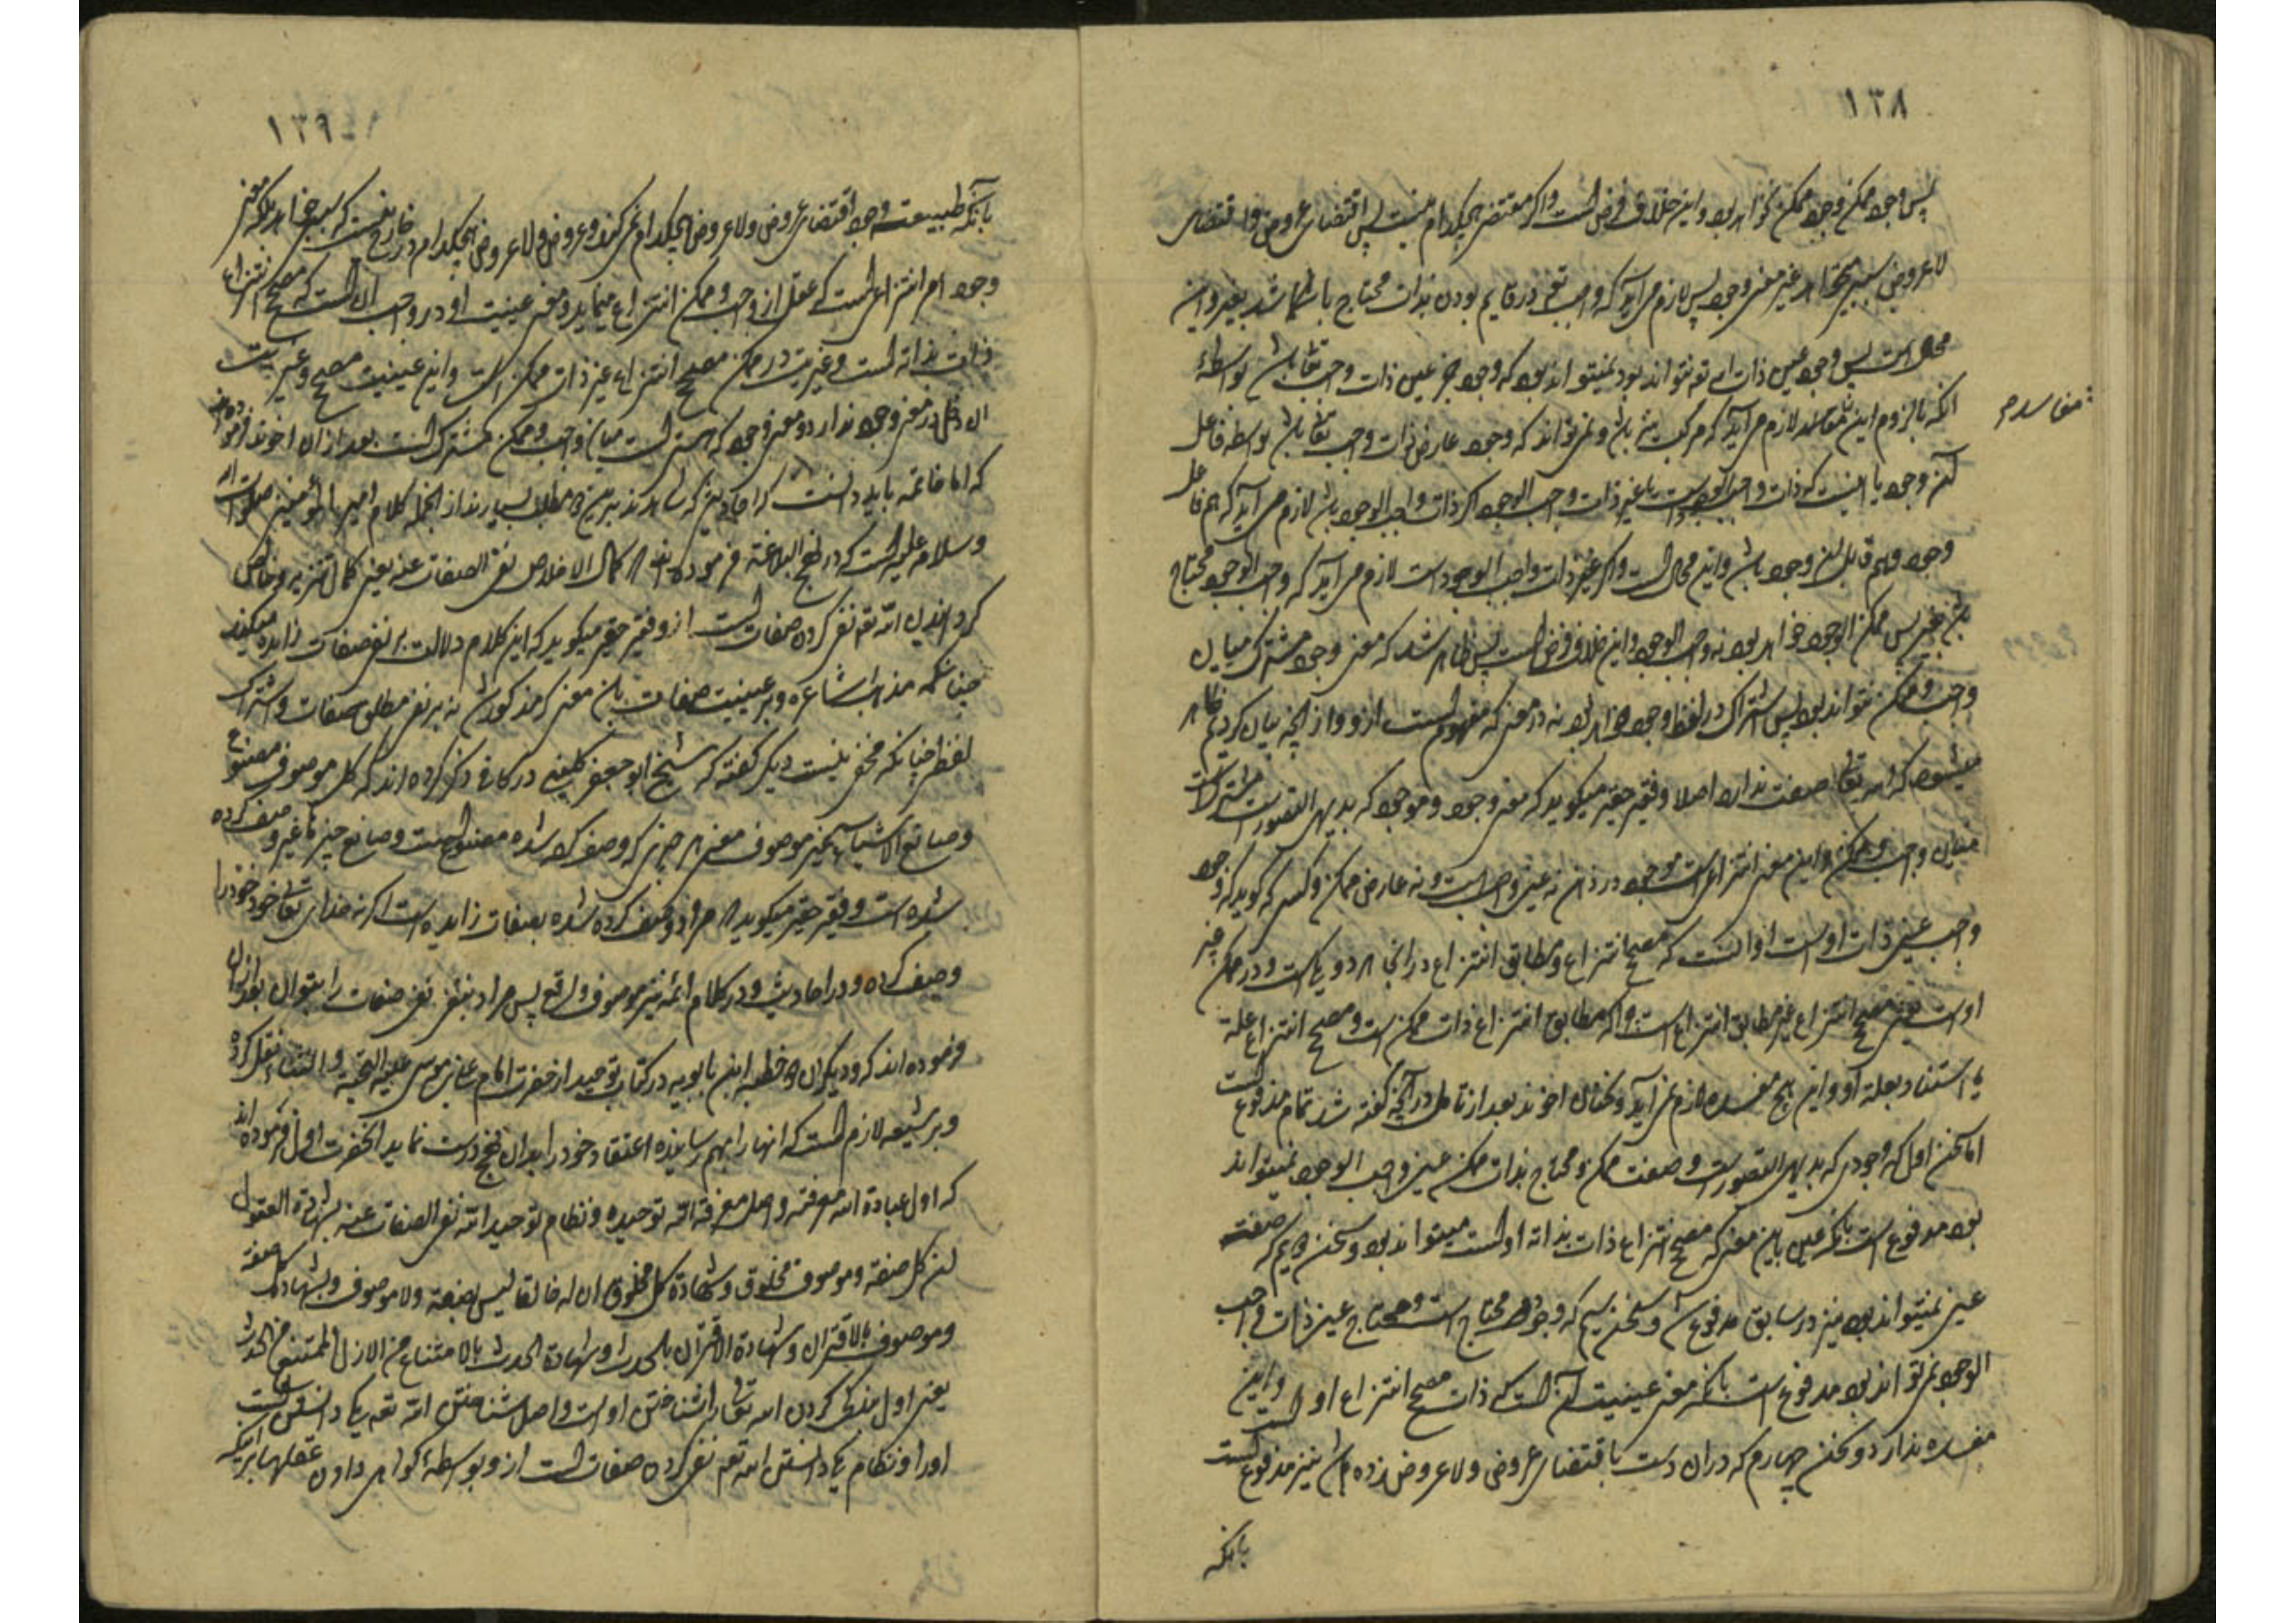 ١٣٨
پس وجود ممکن وجود ممکن نخواهد بود و این خلاف فرض است و اگر مقتضی هیچکدام نیست پس اقتضای عروض و اقتضای
لا عروض سببی میخواهد غیر معنی وجود پس لازم می آید که واجب تعالی در قایم بودن بذات محتاج باشد بغیر و این
محال است پس وجود عین ذات او تعالی نتواند بود و نمیتواند بود که وجود جزء عین ذات واجب تعالی باشد بواسطهٔ
آنکه بالزوم این مفاسد لازم می آید که مرکب باشد و نمی تواند که وجود عارض ذات واجب تعالی باشد بواسطه فاعل
مفاسد
آن وجود یا اینست که ذات واجب الوجود است یا غیر ذات واجب الوجود اگر ذات واجب الوجود باشد لازم می آید که هم فاعل
وجود و هم قابل آن وجود باشد و این محال است و اگر غیر ذات واجب الوجود است لازم می آید که واجب الوجود محتاج
باشد بغیر پس ممکن الوجود خواهد بود نه واجب الوجود و این خلاف فرض است پس ظاهر شد که معنی وجود مشترک میان
واجب و ممکن نتواند بود پس اشتراک در لفظ وجود خواهد بود نه در معنی که مفهوم است ازو و از آنچه بیان کردیم ظاهر
میشود که الله تعالی صفت ندارد اصلا و فقیر حقیر میگوید که معنی وجود و موجود که بدیهی التصور است مشترک است
میان واجب و ممکن و این معنی انتزاعی است موجود در ذهن نه عین واجب است و نه عارض ممکن و کسی که گوید که وجود
واجب عین ذات اوست از آنست که مصحح انتزاع و مطابق انتزاع در آنجا هر دو یکی است و در ممکن غیر
اوست یعنی مصحح انتزاع غیر مطابق انتزاع است چرا که مطابق انتزاع ذات ممکن است و مصحح انتزاع علة
یا استناد بعلة او و این هیچ مفسده لازم نمی آید و سخنان اخوند بعد از تامل در آنچه گفته شد تمام مدفوع است
اما سخن اول که وجودی که بدیهی التصور است و صفت ممکن و محتاج بذات ممکن عین واجب الوجود نمیتواند
بود مدفوع است بانکه عین باین معنی که مصحح انتزاع ذات بذاته اوست میتواند بود و سخن دویم که صفت
عین نمیتواند بود نیز در سابق مدفوع شد و سخن سیم که وجود محتاج است و محتاج عین ذات واجب
الوجود نمی تواند بود مدفوع است بانکه معنی عینیت آن است که ذات مصحح انتزاع او است و این
مفسده ندارد و سخن چهارم که در آن دست باقتضای عروض و لا عروض زده اند نیز مدفوع است
بانکه
١٣٩
بانکه طبیعت وجود اقتضای عروض و لا عروض هیچکدام نمی کند و عروض و لا عروض هیچکدام در خارج نیست که سبب خواهد بلکه معنی
وجود امر انتزاعی است که عقل از واجب و ممکن انتزاع مینماید و معنی عینیت او در واجب آن است که مصحح انتزاع
ذات بذاته است و غیریت در ممکن مصحح انتزاع غیر ذات ممکن است و این عینیت مصحح و غیریت
آن دخل در معنی وجود ندارد و معنی وجود که هست میان واجب و ممکن مشترک است بعد از آن اخوند فرموده اند
که اما خاتمه باید دانست که احادیثی که شاهدند برین مطلب بسیارند از انجمله کلام امیر المؤمنین صلوات الله
و سلامه علیه است که در نهج البلاغة فرموده اند که کمال الاخلاص نفی الصفات عنه یعنی کمال تنزیه و خالص
کردانیدن الله تعالی نفی کردن صفات است ازو فقیر حقیر میگوید که این کلام دلالت بر نفی صفات زایده میکند
چنانکه مذهب اشاعره و بر عینیت صفات بان معنی که مذکور شد نه بر نفی مطلق صفات و اشتراک
لفظی چنانکه مخفی نیست دیگر گفته که شیخ ابو جعفر کلینی در کافی ذکر کرده اند که کل موصوف مصنوع
و صانع الاشیاء غیر موصوف یعنی هر چیزی که وصف کرده شده مصنوع است و صانع چیزها غیر وصف کرده
شده است و فقیر حقیر میگوید که مراد وصف کرده شده بصفات زایده است اگر نه خدای تعالی خود خود را
وصف کرده و در احادیث و در کلام ائمه نیز موصوف واقع پس مراد بنفی نفی صفات را بتوان بعد از آن
فرموده اند که و دیگر آن خطبه ابن بابویه در کتاب توحید از حضرت امام علی بن موسی علیه التحیة و الثناء نقل کرده
و بر شیعه لازم است که آنها را بهم رسانیده اعتقاد خود را بدان نهج درست نماید آنحضرت اول فرموده اند
که اول عبادة الله معرفته و اصل معرفة الله توحیده و نظام توحید الله نفی الصفات عنه بشهادة العقول
ان کل صفة و موصوف مخلوق و شهادة کل مخلوق ان له خالقا لیس بصفة و لا موصوف و بشهادة کل صفة
و موصوف بالاقتران و شهادة الاقتران بالحدث و شهادة الحدث بالامتناع من الازل الممتنع من الحدث
یعنی اول بندگی کردن الله تعالی را شناختن اوست و اصل شناختن الله تعالی یکتا دانستن است
او را و نظام یکتا دانستن الله تعالی نفی کردن صفات است ازو بواسطهٔ گواهی دادن عقلها بر اینکه